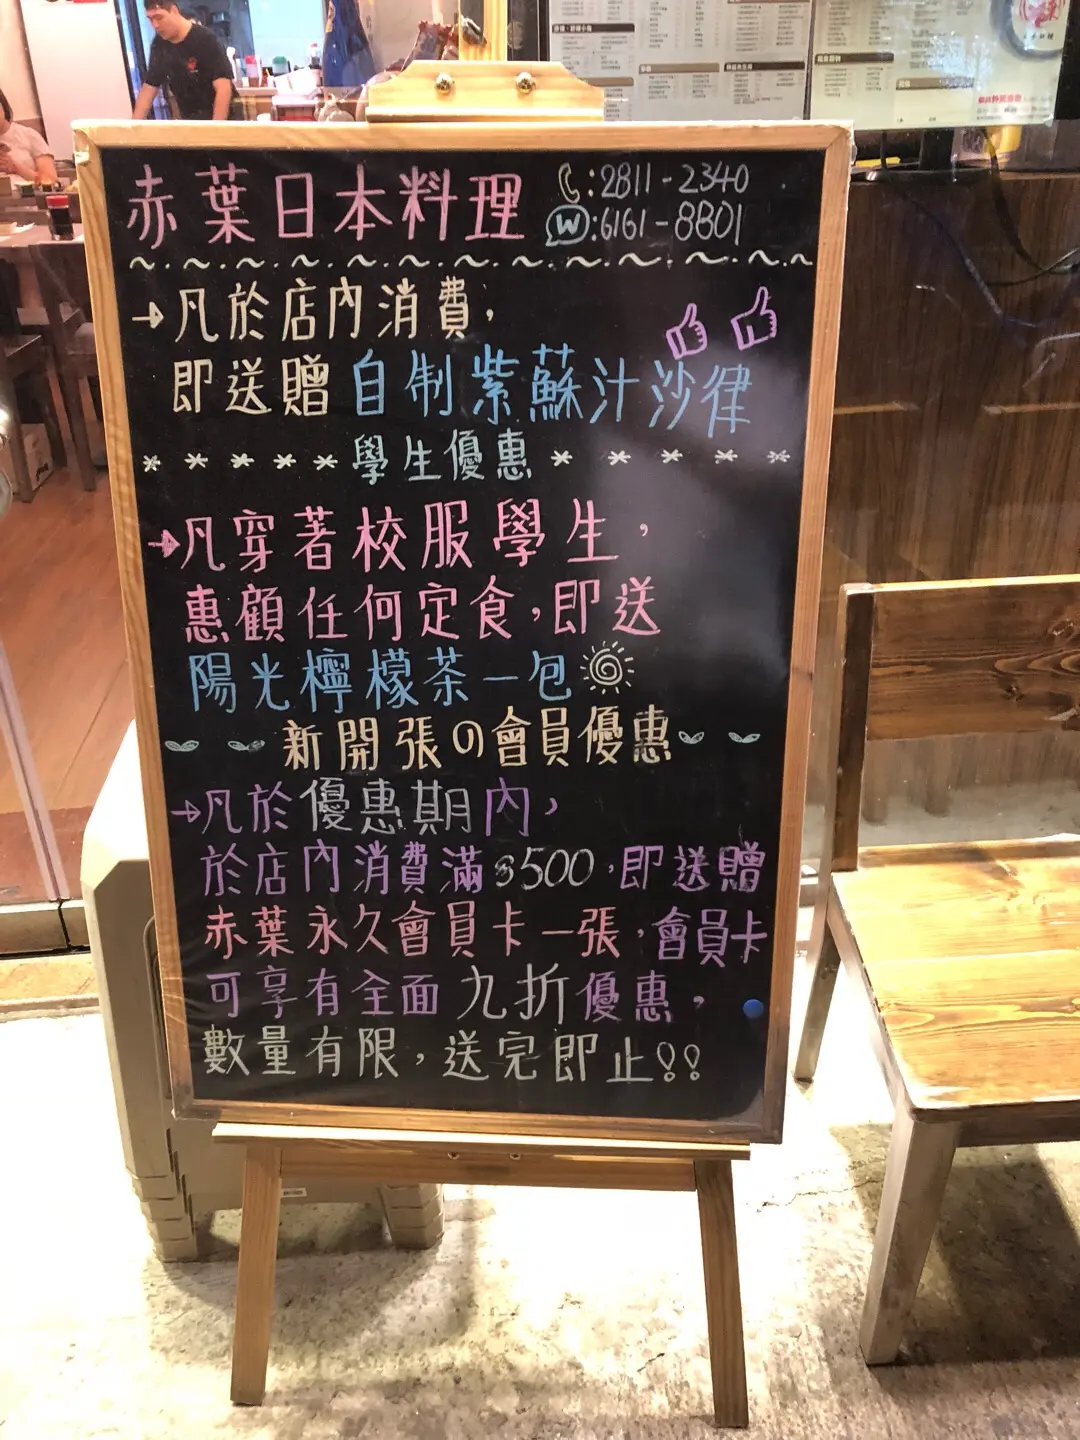 赤葉日本料理
:2811-2340
W:6161-8801
→凡於店內消費，
即送贈自制紫蘇汁沙律
* * * * * 學生優惠 * * * * *
→凡穿著校服學生，
惠顧任何定食，即送
陽光檸檬茶一包
新開張の會員優惠
→凡於優惠期內，
於店內消費滿$500，即送贈
赤葉永久會員卡一張，會員卡
可享有全面九折優惠，
數量有限，送完即止!!